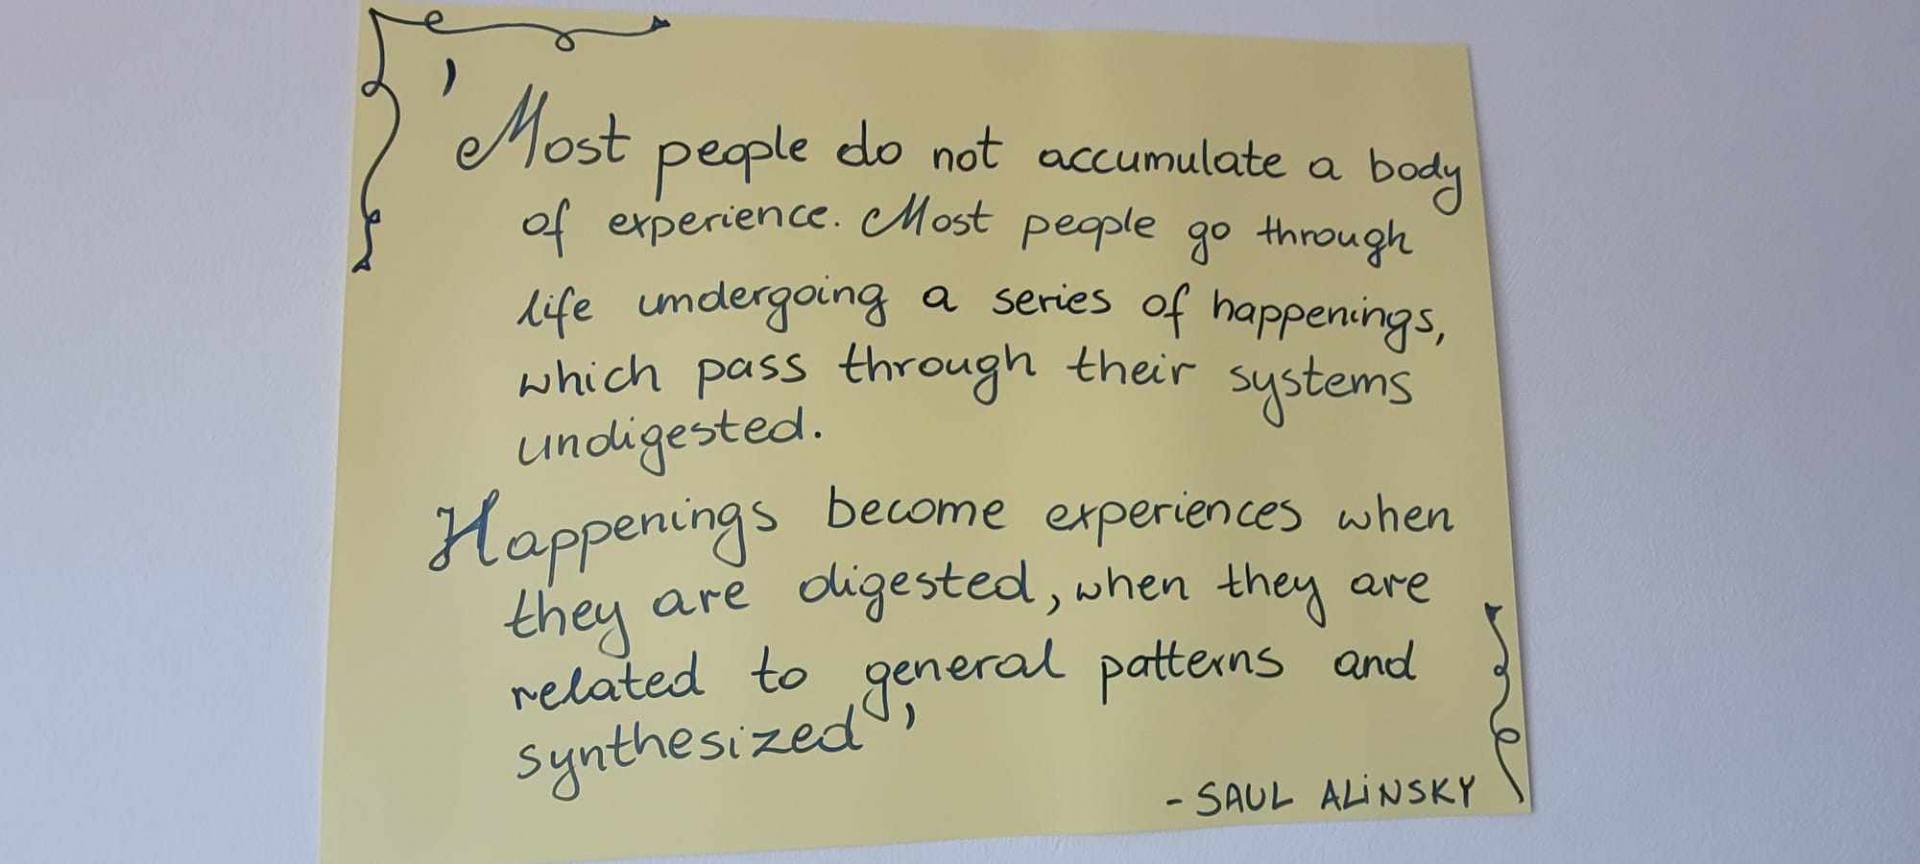 'Most people do not accumulate a body
of experience. Most people go through
life undergoing a series of happenings,
which pass through their systems
undigested.
Happenings become experiences when
they are digested, when they are
related to general patterns and
synthesized'
- SAUL ALINSKY